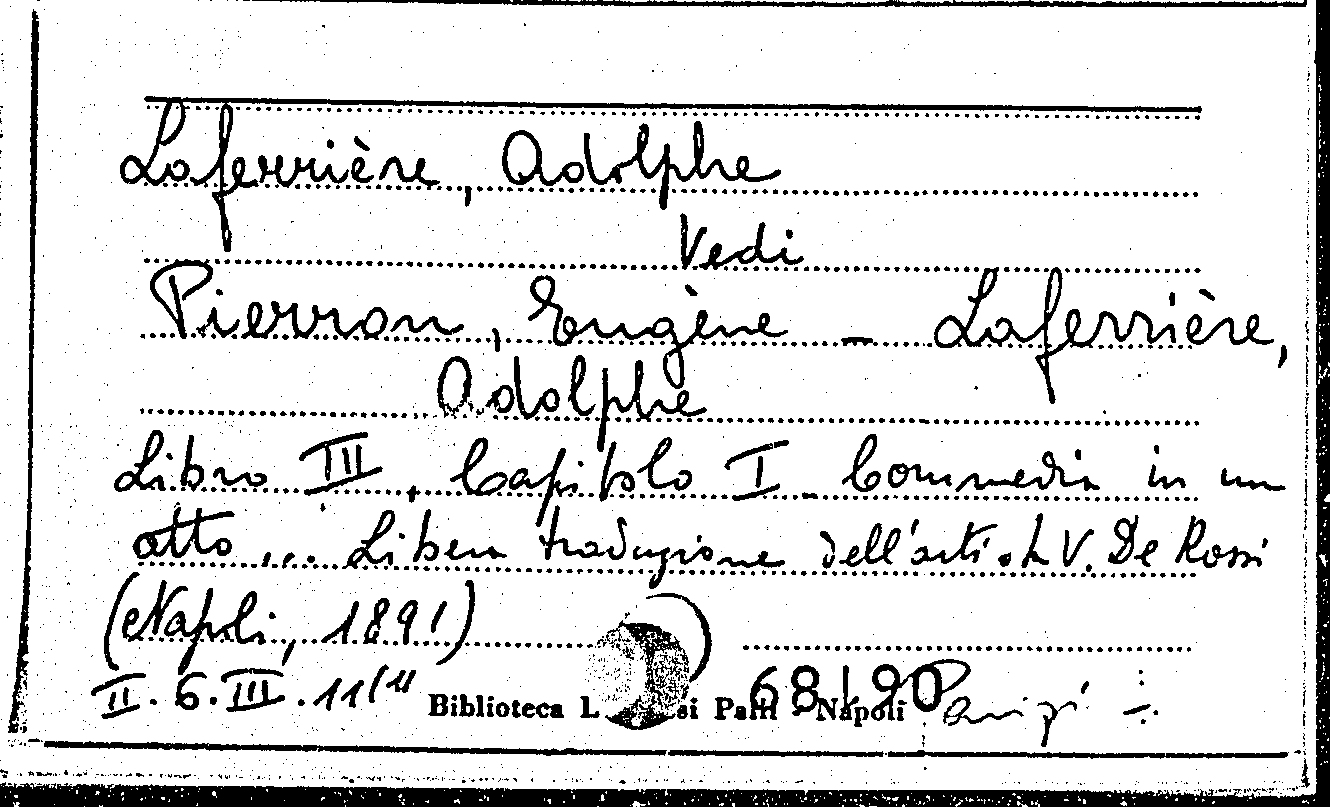 Laferrière, Adolphe
Vedi
Pierron, Eugène – Laferrière,
Adolphe
Libro III, Capitolo I – Commedia in un
atto ... Libera traduzione dell'artista V. De Rossi
(Napoli, 1891)
II. 6. III. 11(11
Biblioteca L si Palli - Napoli
68190